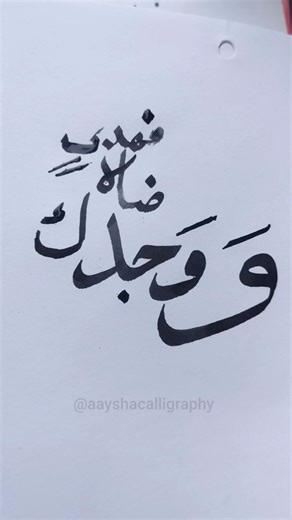 وَوَجدك
ضالا
فهدى
@aayshacalligraphy